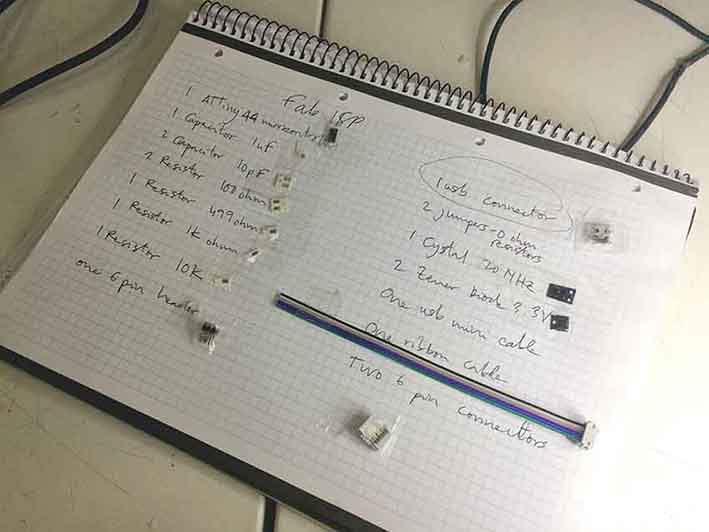 Fab ISP
1 ATtiny 44 microcontroller
1 Capacitor 1uF
2 Capacitor 10pF
2 Resistor 100 ohm
1 Resistor 499 ohm
1 Resistor 1K ohm
1 Resistor 10K
one 6 pin header
1 usb connector
2 jumpers - 0 ohm
resistors
1 Cystal 20 MHz
2 Zener 3.3V
One usb mini cable
One ribbon cable
Two 6 pin connectors